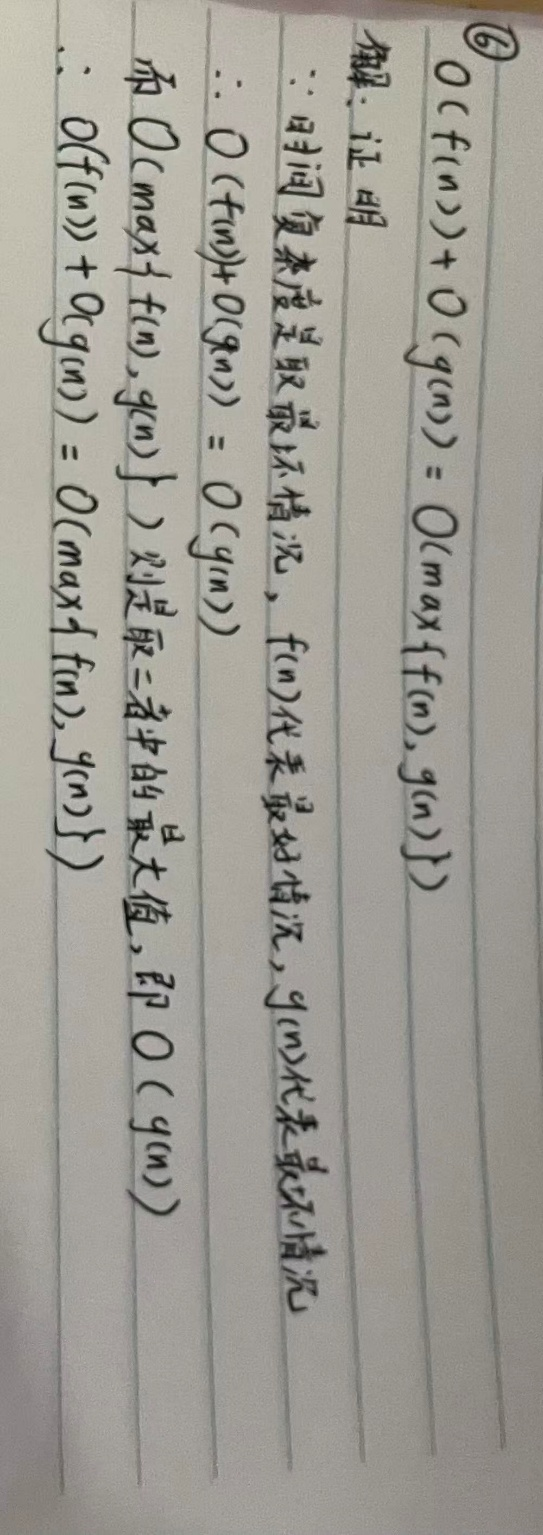 ⑥
O(f(n))+O(g(n))=O(max{f(n),g(n)})
解:证明
∵时间复杂度是取最坏情况,f(n)代表最好情况,g(n)代表最坏情况
∴O(f(n))+O(g(n))=O(g(n))
而O(max{f(n),g(n)})则是取二者中的最大值,即O(g(n))
∴O(f(n))+O(g(n))=O(max{f(n),g(n)})